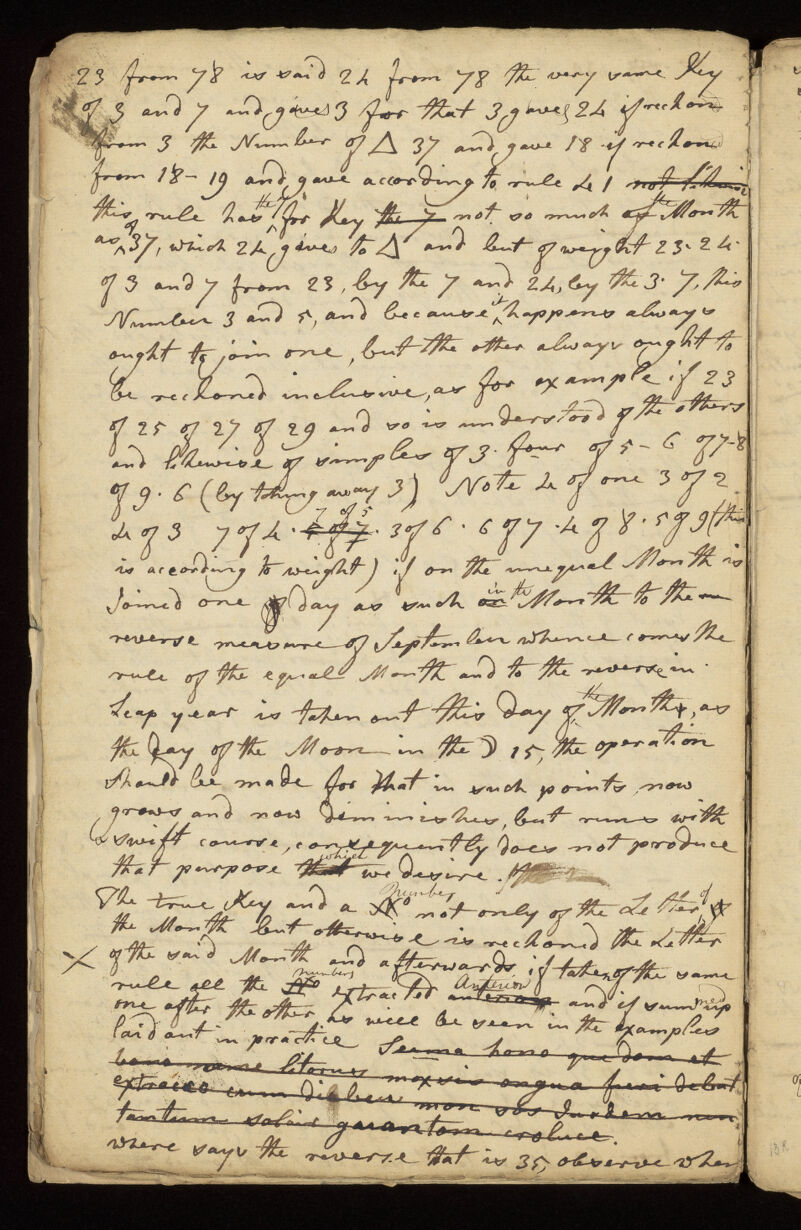 23 from 78 is said 24 from 78 the very same Key
of 3 and 7 and gaves 3 for that 3 gaves 24 if reckon
from 3 the Number of △ 37 and gave 18 if reckon
from 18 - 19 and gave according to rule 41 not
this rule has the 7 for Key the 7 not so much as the Month
as of 37, which 24 gives to △ and but of weight 23. 24.
of 3 and 7 from 23, by the 7 and 24, by the 3. 7, this
Number 3 and 5, and because it happens always
ought to join one, but the other always ought to
be reckoned inclusive, as for example if 23
of 25 of 27 of 29 and so is understood of the others
and likewise of simples of 3. four of 5 - 6 of 7-8
of 9. 6 (by taking away 3) Note 4 of one 3 of 2
4 of 3 7 of 4. 5 of 7 7 of 5. 3 of 6. 6 of 7. 4 of 8. 5 of 9 (this
is according to weight) if on the unequal Month is
Joined one day as such or in the Month to the
reverse measure of September whence comes the
rule of the equal Month and to the reverse in
Leap year is taken out this day of the Month, as
the Day of the Moon in the ☽ 15, the operation
should be made for that in such points now
grows and now diminishes, but runs with
a swift course, consequently does not produce
that purpose that which we desire.
The true Key and a No Number not only of the Letter of
the Month but otherwise is reckoned the Letter
× of the said Month and afterwards if taken of the same
rule all the No numbers extracted Anterior and if summed up
one after the other as will be seen in the examples
laid out in practice Seema hono que dom et
name litorus maxsis ongua fieri debat
extracco cum mon sos Jurdem non
tantum solvir quarantom
where says the reverse that is 35, observe when